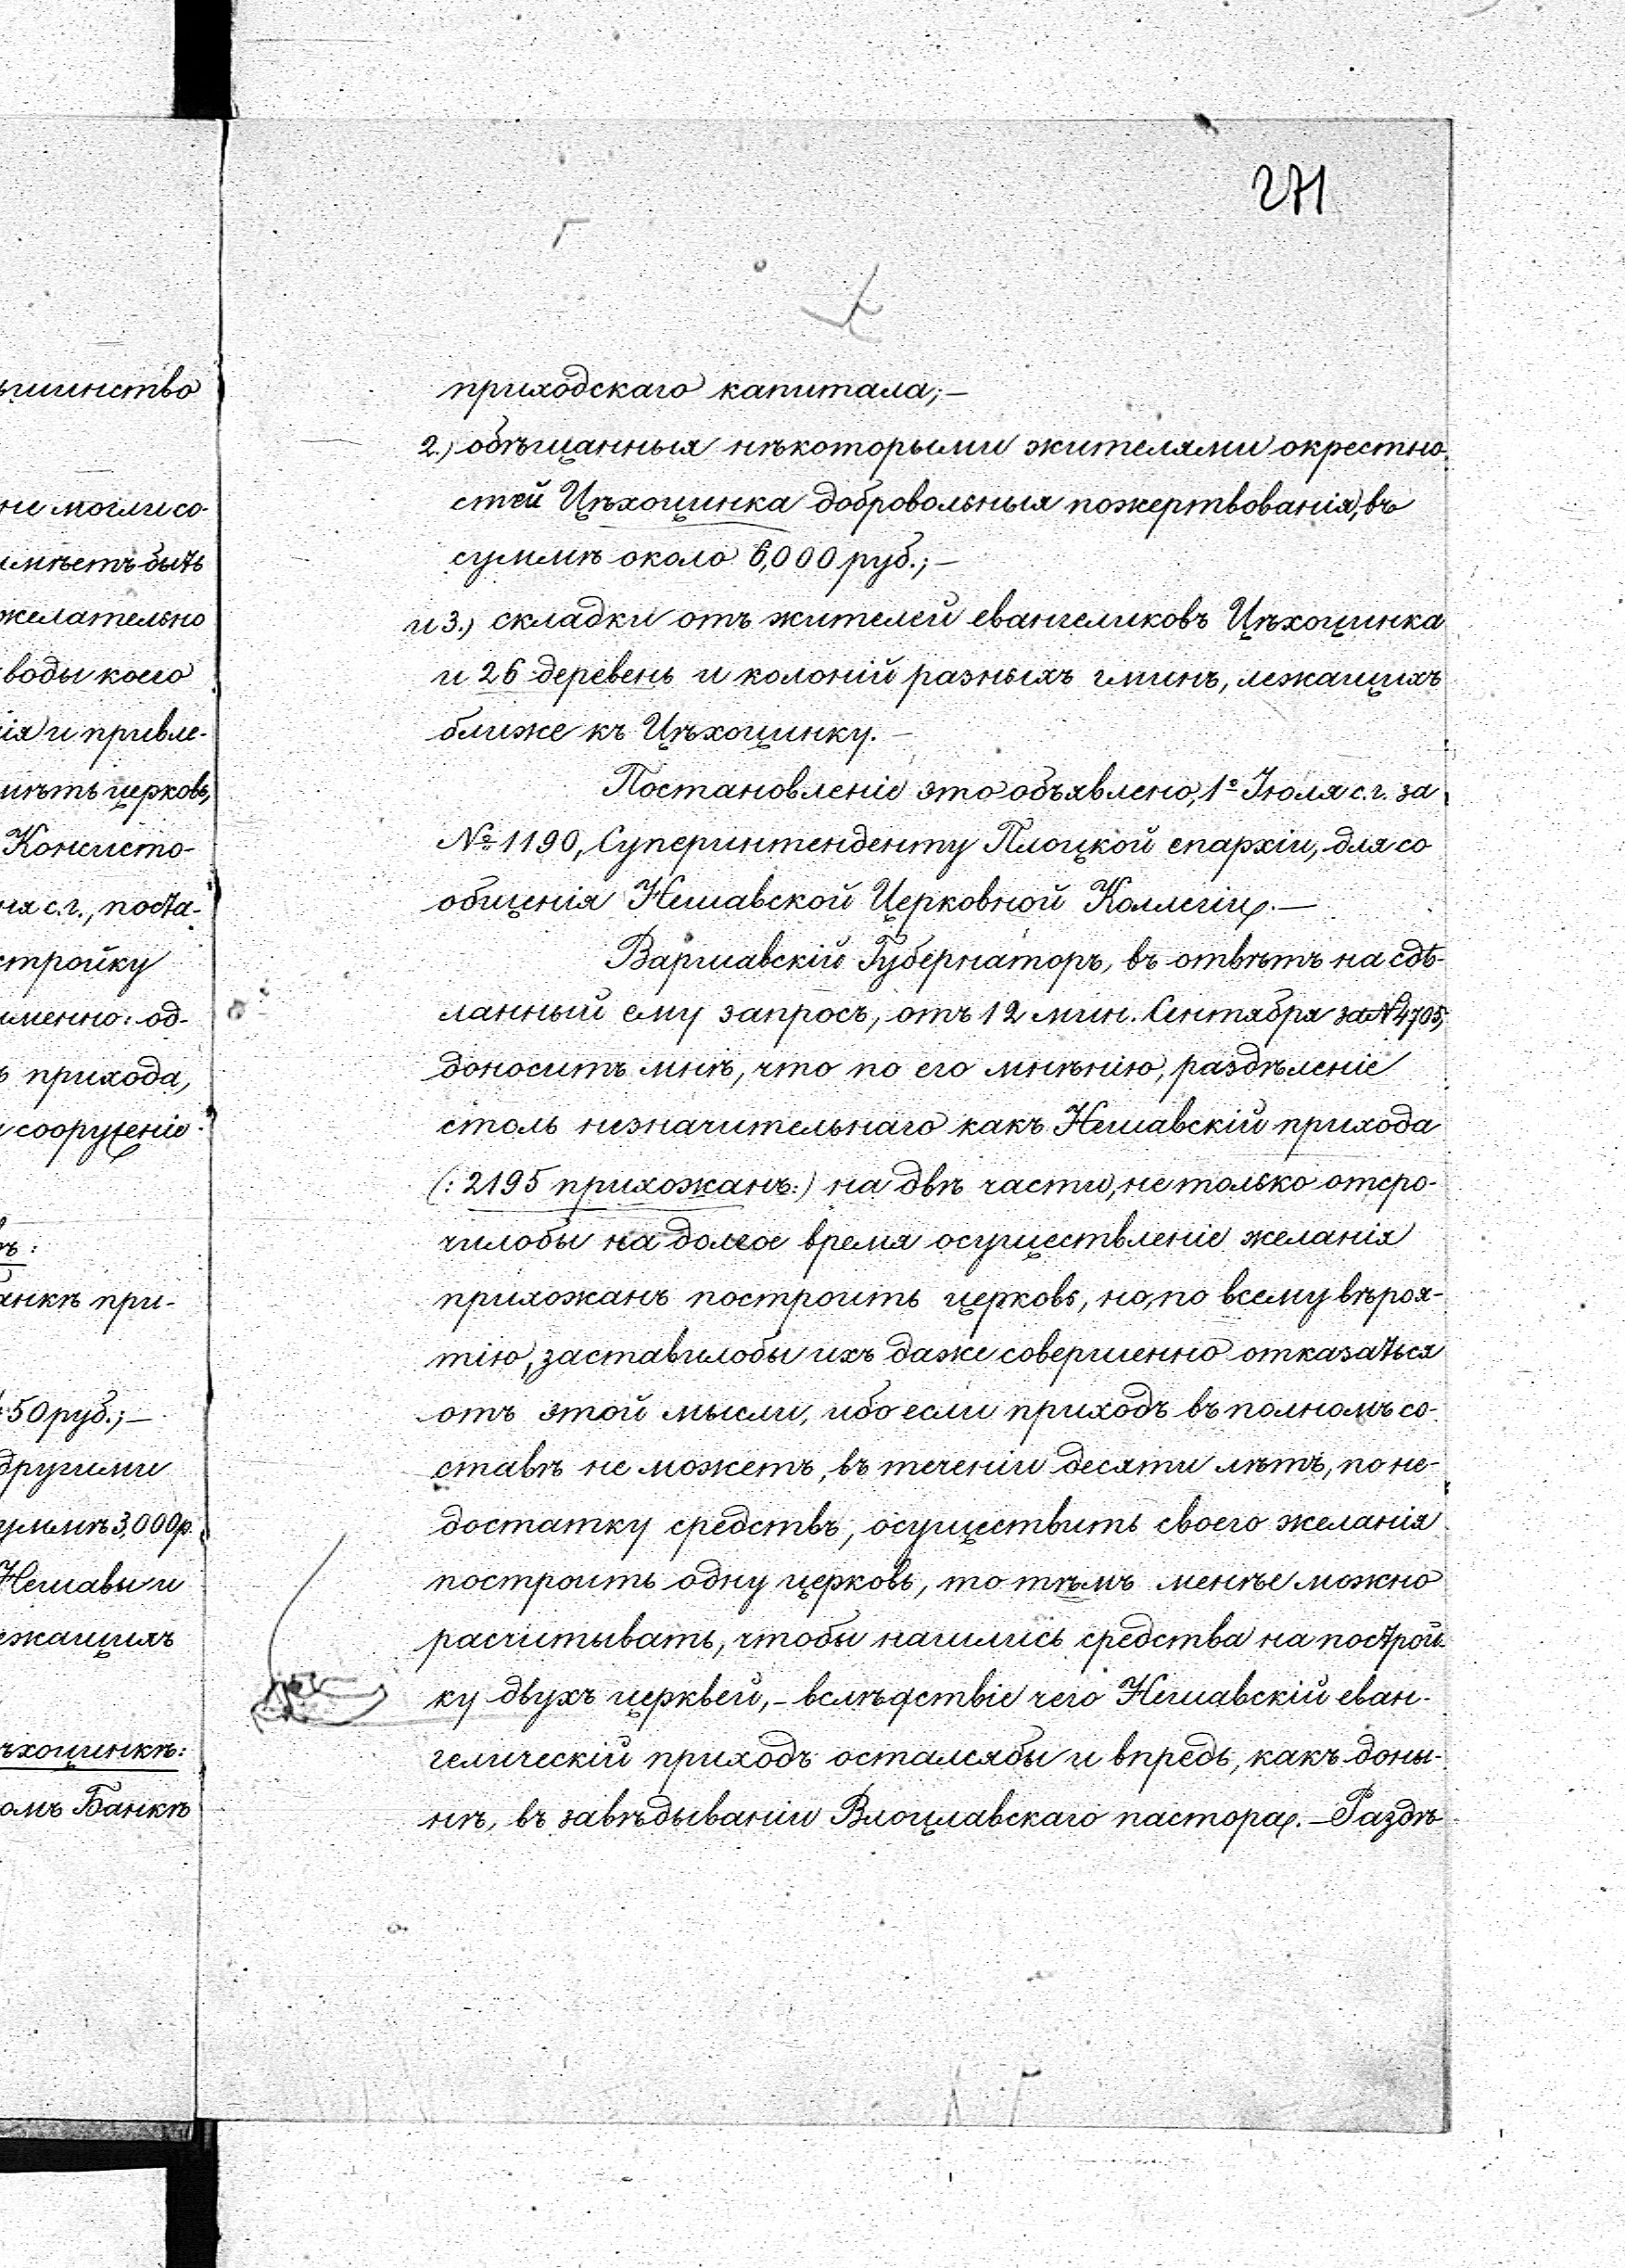 271
приходскаго капитала;—
2.) обѣщанныя нѣкоторыми жителями окрестно-
стей Цѣхоцинка добровольныя пожертвованія, въ
суммѣ около 6,000 руб.;—
и 3.) складки отъ жителей евангеликовъ Цѣхоцинка
и 26 деревень и колоній разныхъ гминъ, лежащихъ
ближе къ Цѣхоцинку.—
Постановленіе это объявлено, 1º Іюля с.г. за
№ 1190, Суперинтенденту Плоцкой епархіи, для со
общенія Нешавской Церковной Коллегіи.—
Варшавскій Губернаторъ, въ отвѣтъ на сдѣ-
ланный ему запросъ, отъ 12 мин. Сентября за № 4705,
доноситъ мнѣ, что по его мнѣнію, раздѣленіе
столь незначительнаго какъ Нешавскій прихода
(: 2195 прихожанъ:) на двѣ части, не только отсро-
чилобы на долгое время осуществленіе желанія
прихожанъ построить церковь, но, по всему вѣроя-
тію, заставилобы ихъ даже совершенно отказаться
отъ этой мысли, ибо если приходъ въ полномъ со-
ставѣ не можетъ, въ теченіи десяти лѣтъ, по не-
достатку средствъ, осуществить своего желанія
построить одну церковь, то тѣмъ менѣе можно
расчитывать, чтобы нашлись средства на построй-
ку двухъ церквей,— вслѣдствіе чего Нешавскій еван-
гелическій приходъ осталсябы и впредь, какъ доны-
нѣ, въ завѣдываніи Влоцлавскаго пастора.— Раздѣ
ьшинство
не могли со-
имѣетъ быть
желательно
воды коего
ія и привле-
имѣть церковь,
Консисто-
ня с.г., поста-
стройку
именно: од-
ъ прихода,
сооруженіе
ѣ:
анкѣ при-
50 руб.;—
другими
уммѣ 3,000 р.
Нешавы и
ежащихъ
ѣхоцинкѣ:
омъ Банкѣ